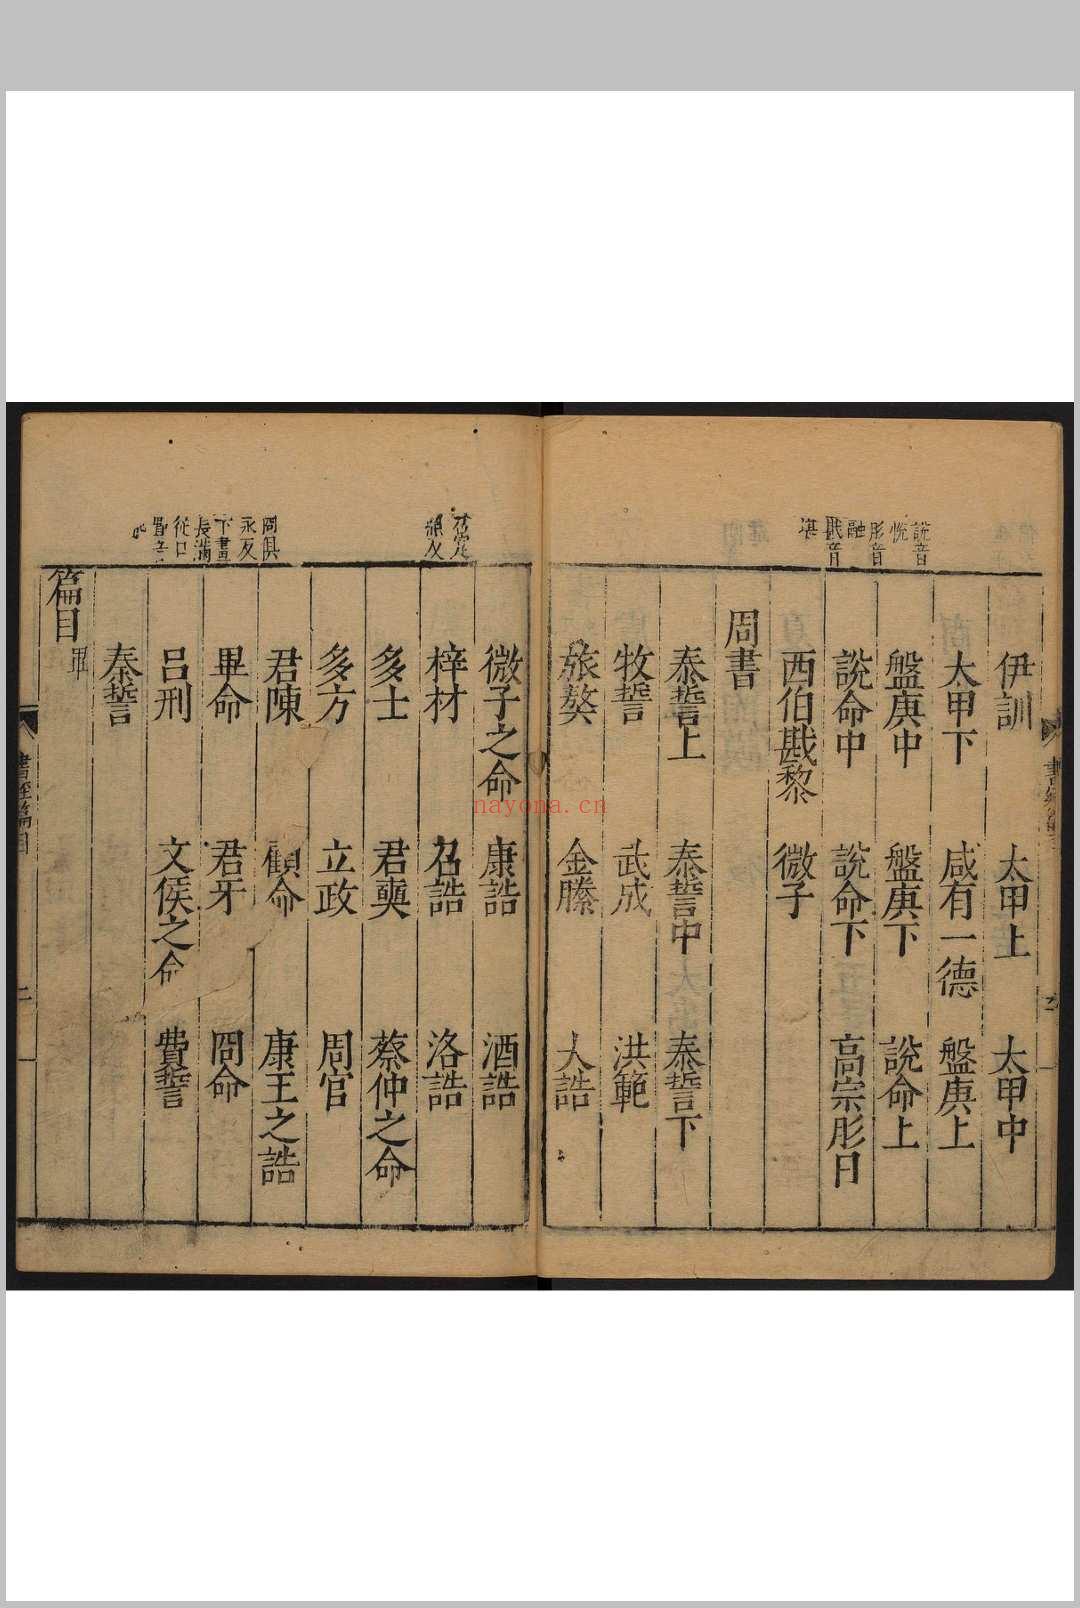 說音
悅
肜音
融
戡音
堪
伊訓 太甲上 太甲中
太甲下 咸有一德 盤庚上
盤庚中 盤庚下 說命上
說命中 說命下 高宗肜日
西伯戡黎 微子
周書
泰誓上 泰誓中 泰誓下
牧誓 武成 洪範
旅獒 金縢 大誥
微子之命 康誥 酒誥
梓材 召誥 洛誥
多士 君奭 蔡仲之命
多方 立政 周官
君陳 顧命 康王之誥
畢命 君牙 冏命
呂刑 文侯之命 費誓
秦誓
篇目畢
冏俱
永反
下畫
長滿
從口
書經篇目
二
nayona.cn